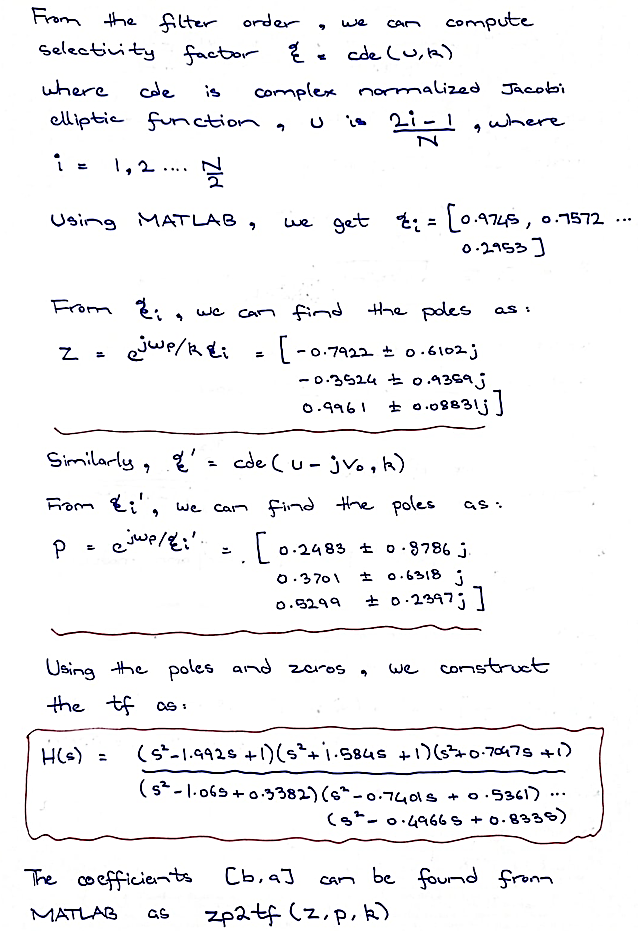 From the filter order , we can compute
selectivity factor ξ = cde(u,k)
where cde is complex normalized Jacobi
elliptic function , u is (2i-1)/N , where
i = 1,2 .... N/2
Using MATLAB , we get ξi = [0.9745, 0.7572 ...
0.2953]
From ξi , we can find the poles as :
Z = e^jωp/kξi = [-0.7922 ± 0.6102j
-0.3524 ± 0.9359j
0.9961 ± 0.08831j]
Similarly , ξ' = cde(u-jVo,k)
From ξi', we can find the poles as :
P = e^jωp/ξi' = [0.2483 ± 0.8786j
0.3701 ± 0.6318j
0.5299 ± 0.2397j]
Using the poles and zeros , we construct
the tf as :
H(s) = (s²-1.992s+1)(s²+1.584s+1)(s²+0.7047s+1)
(s²-1.06s+0.3382)(s²-0.7401s+0.5361) ...
(s²-0.4966s+0.8335)
The coefficients [b,a] can be found from
MATLAB as zp2tf(z,p,k)